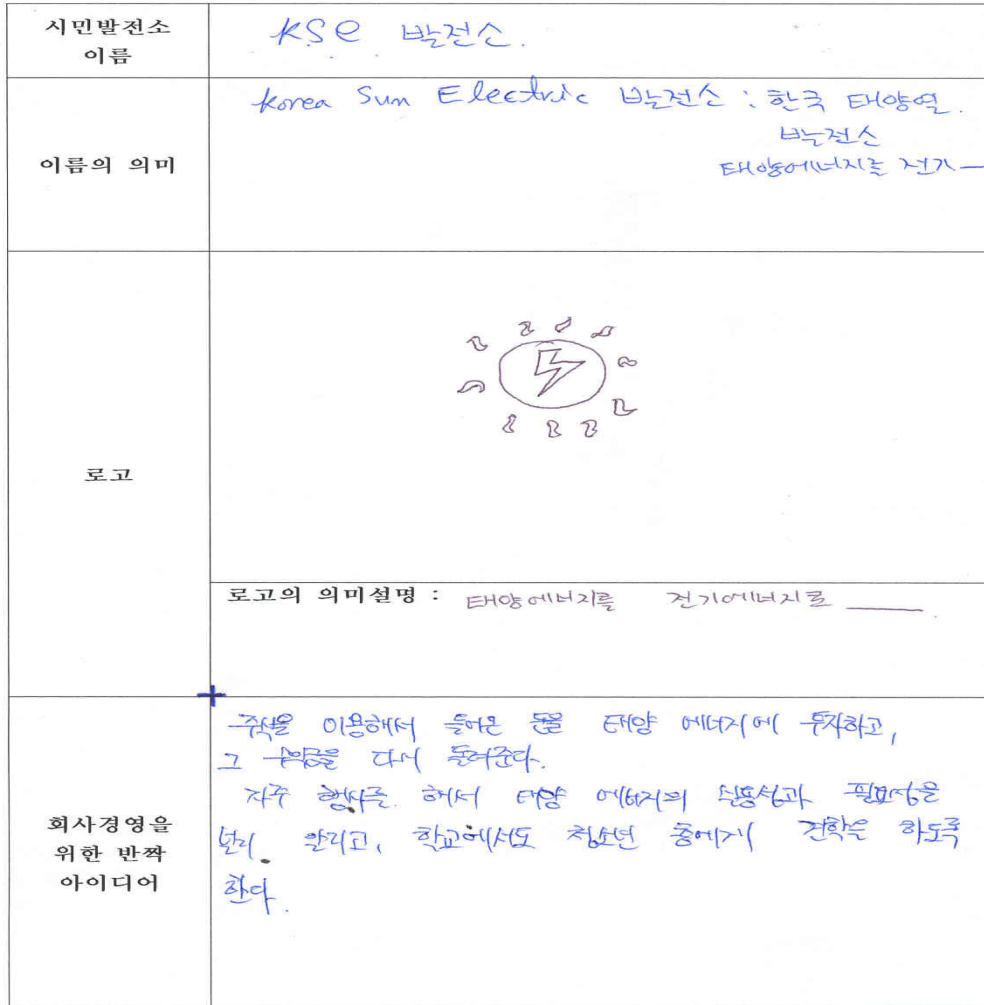 시민발전소
이름
KSe 발전소.
이름의 의미
Korea Sun Electric 발전소 : 한국 태양열.
발전소
태양에너지를 전기 —
로고
로고의 의미설명 : 태양에너지를 전기에너지로 ____
회사경영을
위한 반짝
아이디어
주식을 이용해서 들어온 돈을 태양 에너지에 투자하고,
그 수익금을 다시 돌려준다.
자주 행사를 해서 태양 에너지의 실용성과 필요성을
널리 알리고, 학교에서도 청소년 층에게 견학을 하도록
한다.